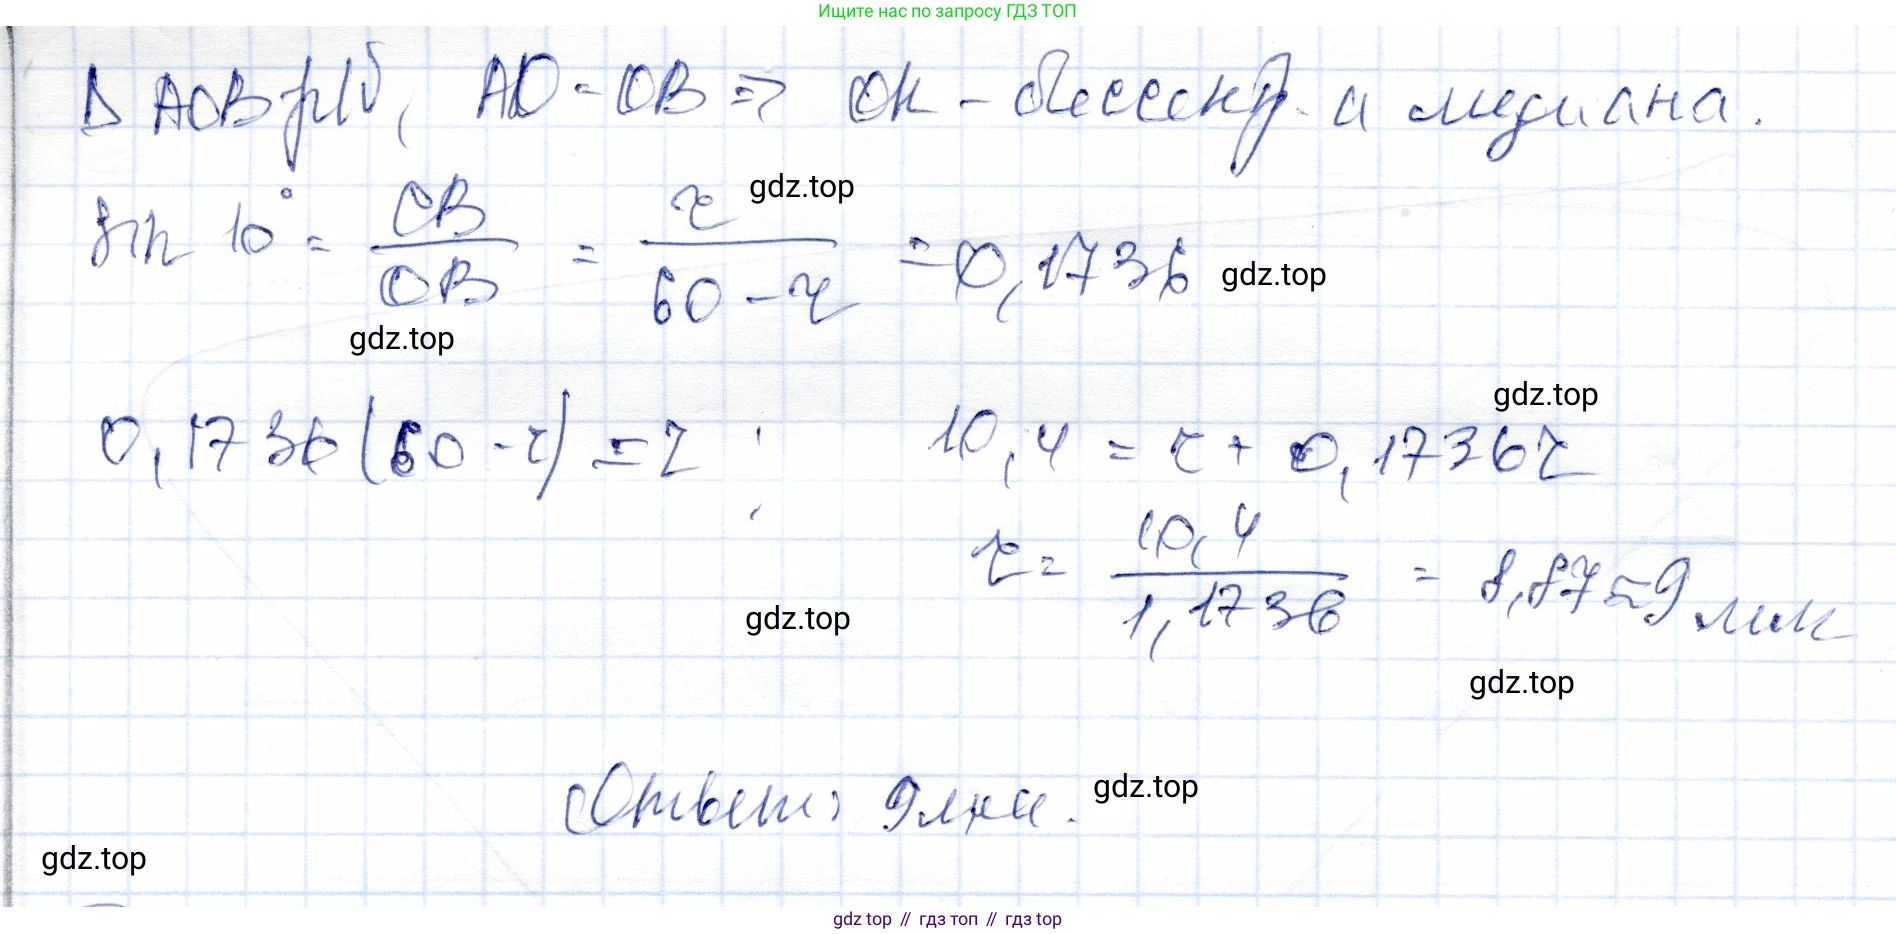 Ищите нас по запросу ГДЗ ТОП
Δ AOB р/б, AO = OB => OK - биссектр. и медиана.
sin 10° = CB/OB = r/(60 - r) = 0,1736
gdz.top
gdz.top
gdz.top
0,1736(60 - r) = r ; 10,4 = r + 0,1736r
gdz.top
r = 10,4/1,1736 = 8,87 ≈ 9 мм
gdz.top
gdz.top
Ответ: 9 мм.
gdz.top
gdz.top
gdz top // гдз топ // гдз top